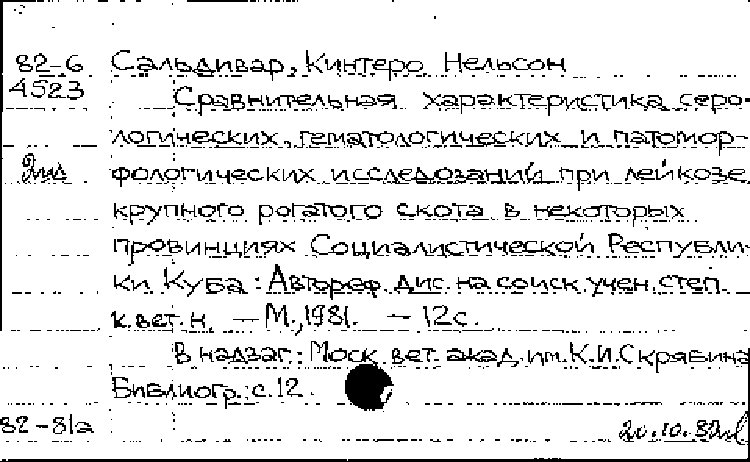 82-6 Сальдивар, Кинтеро Нельсон
4523 Сравнительная характеристика серо-
логических, гематологических и патомор-
фологических исследований при лейкозе
крупного рогатого скота в некоторых
провинциях Социалистической Республи-
ки Куба: Автореф. дис. на соиск. учен. степ.
к. вет. н. — М., 1981. — 12 с.
В надзаг.: Моск. вет. акад. им. К.И. Скрябина
Библиогр.: с. 12.
82-81а 20.10.82